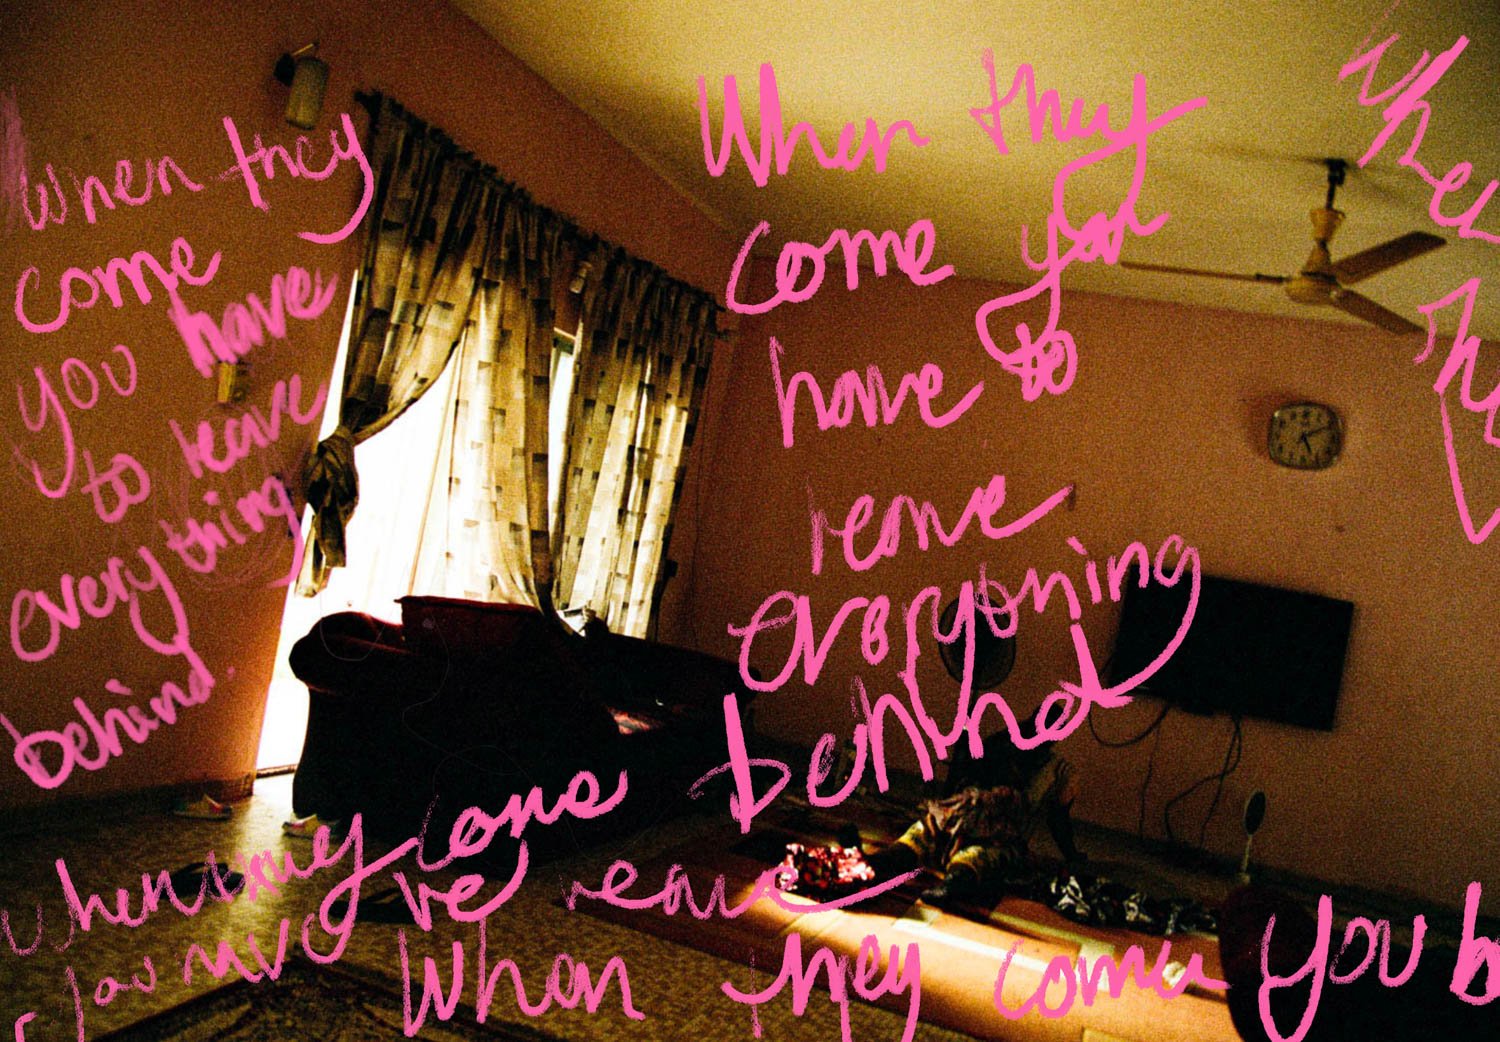 When they
come
you have
to leave
everything
behind.
When they
come you
have to
leave
everything
behind
When they come
leave
When they come you
When